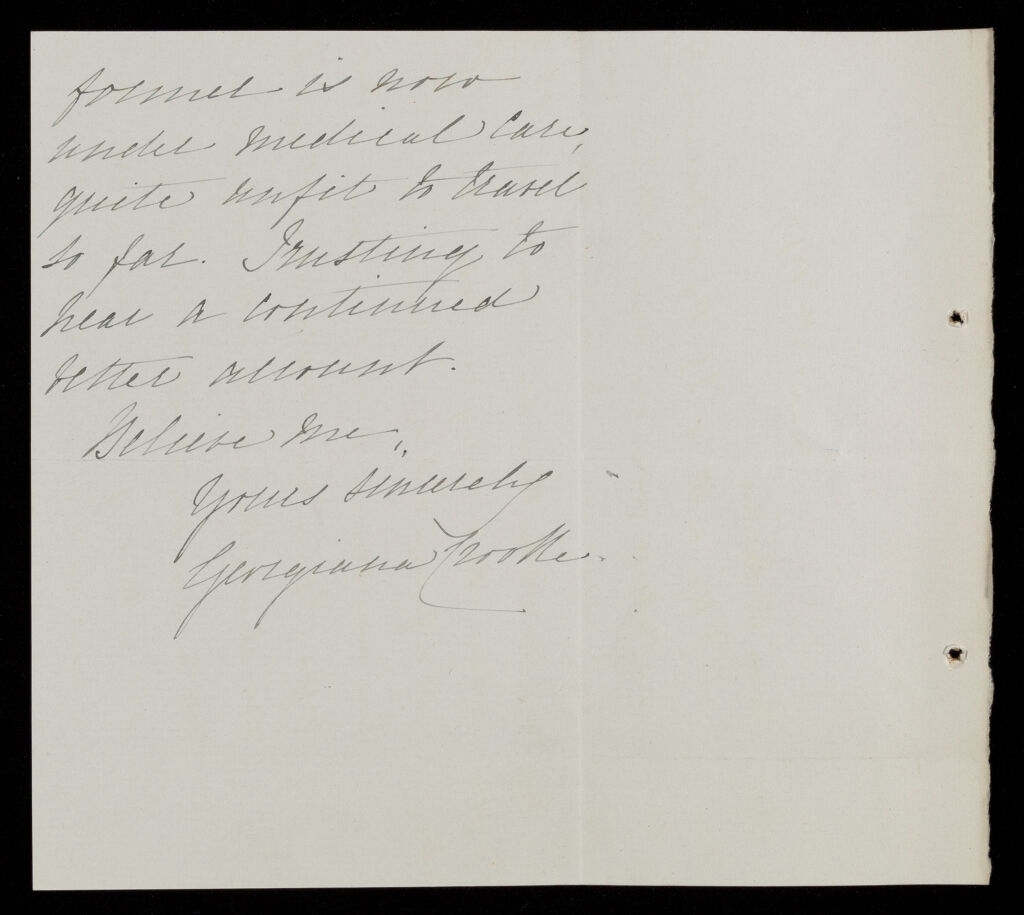 former is now
under medical care,
quite unfit to travel
so far. Trusting to
hear a continued
better account.
Believe me,
Yours sincerely
Georgiana Crooke